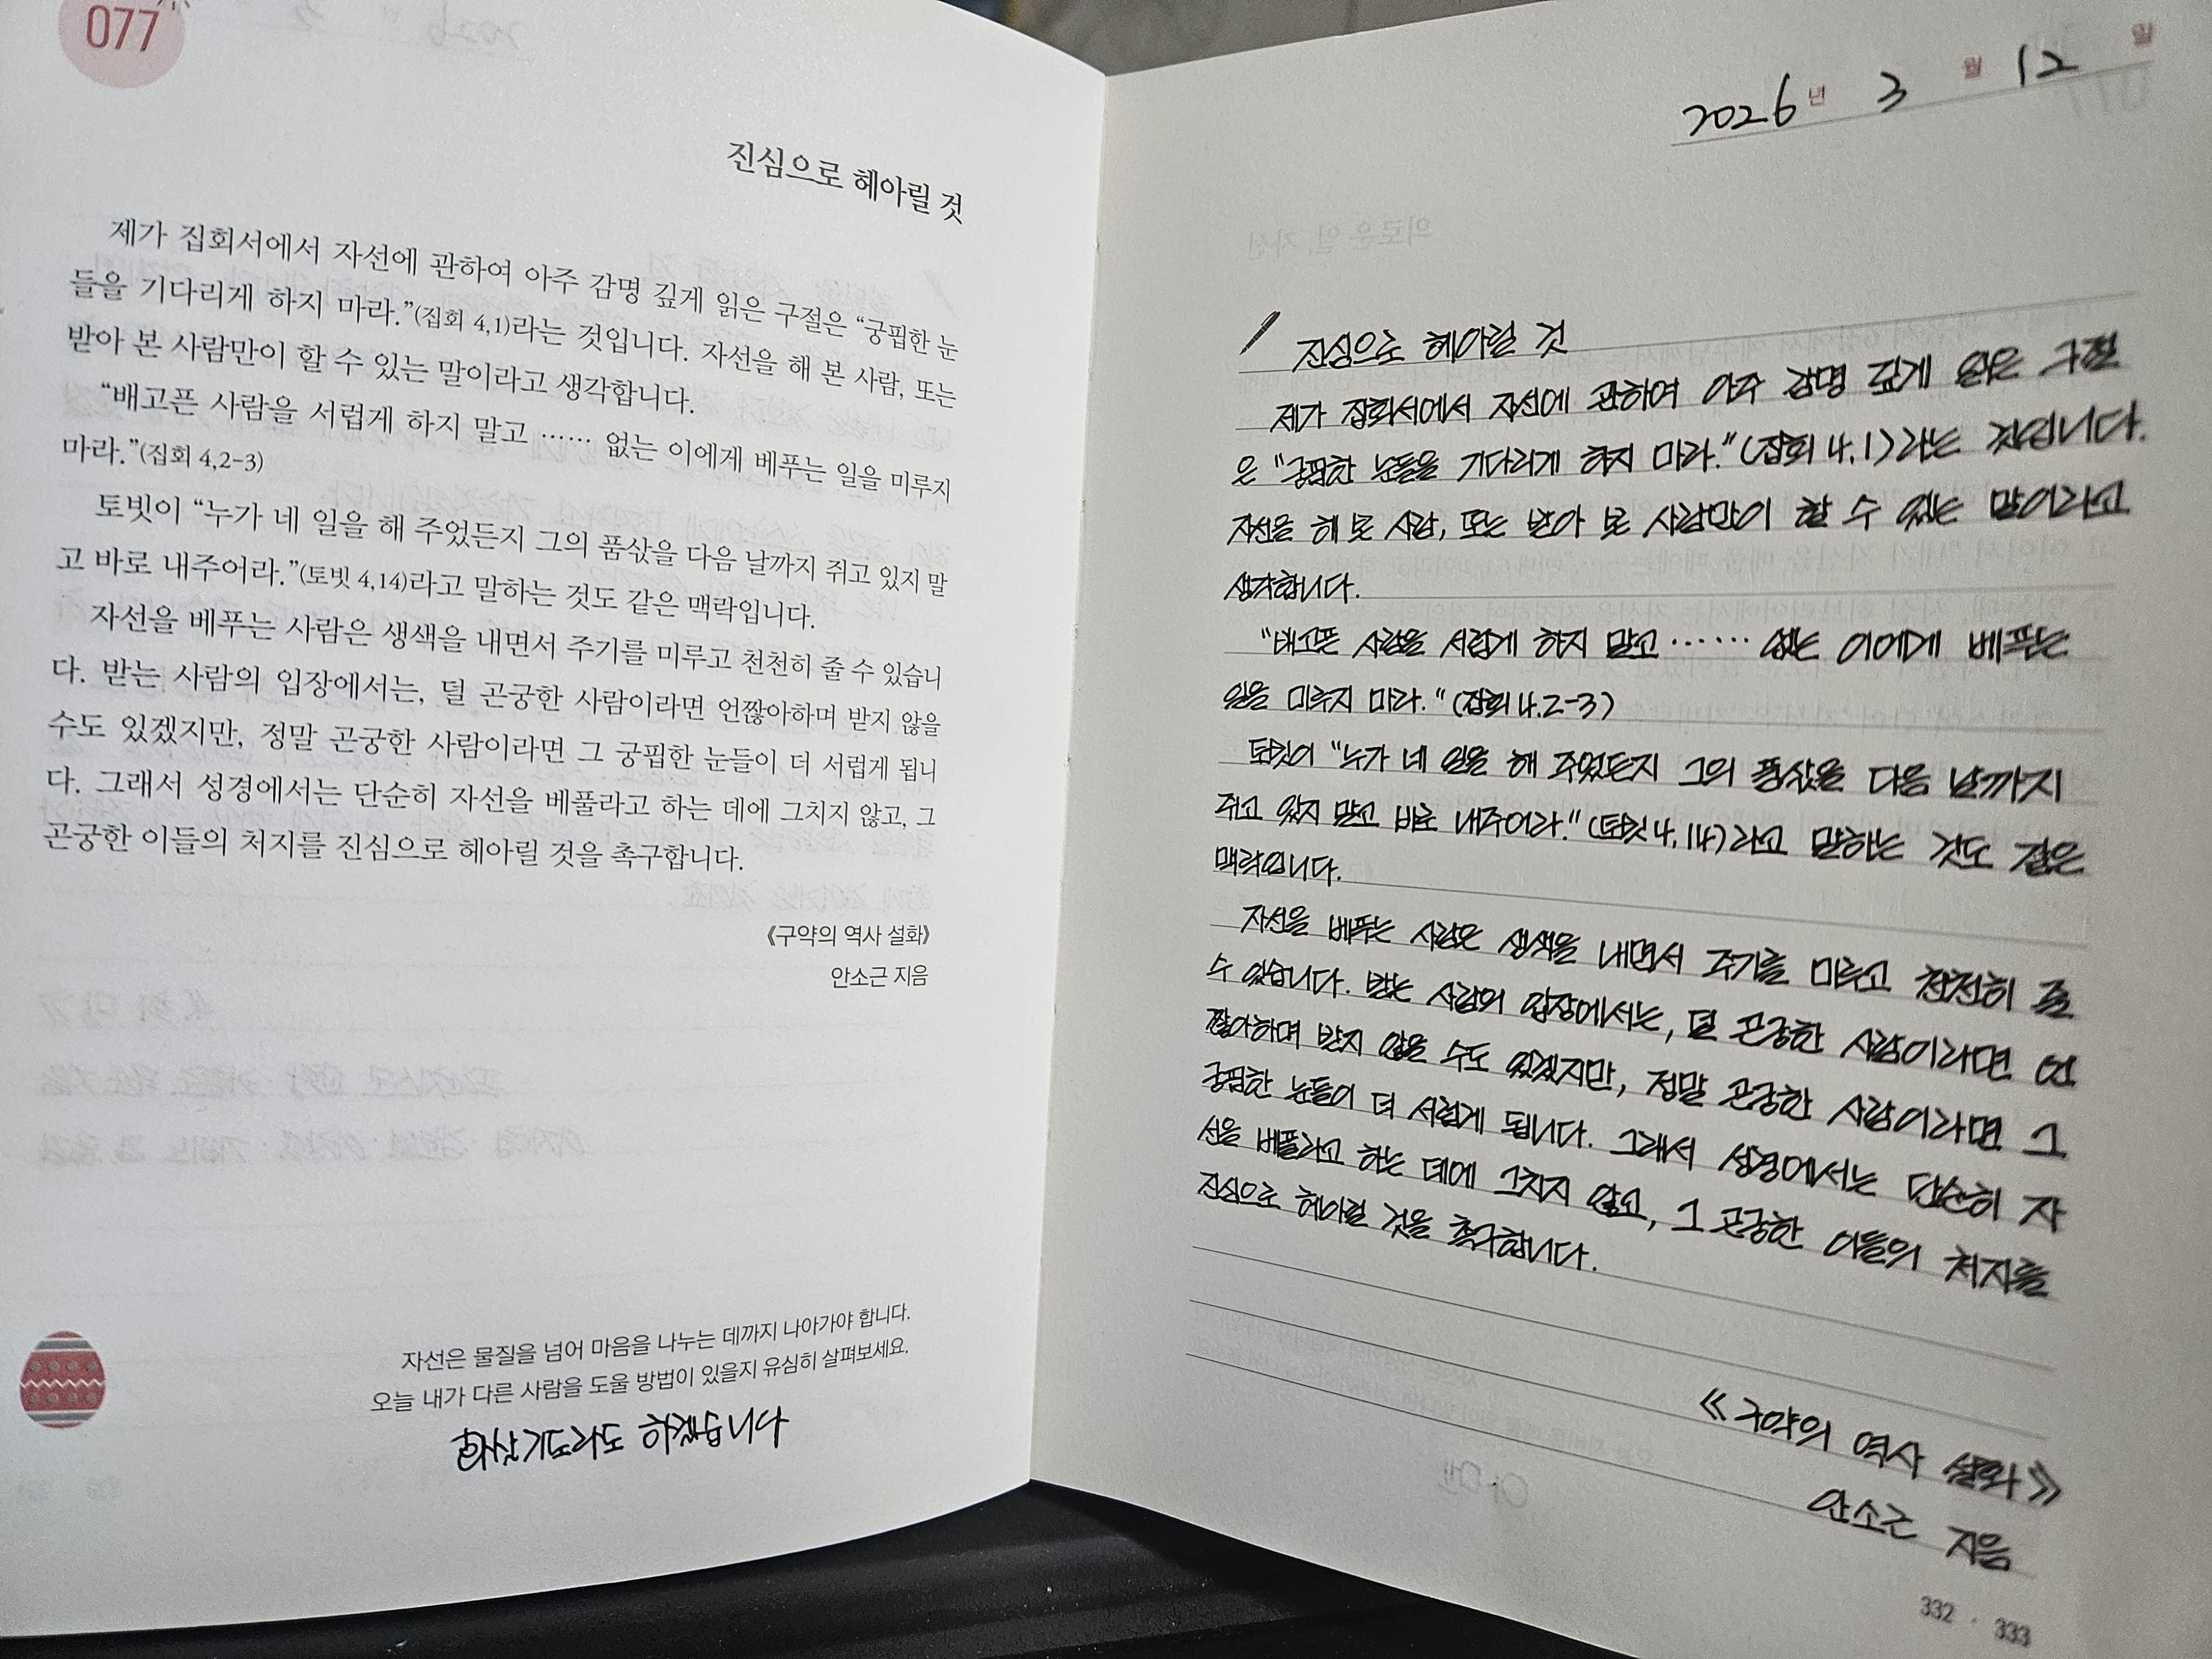 077
진심으로 헤아릴 것
제가 집회서에서 자선에 관하여 아주 감명 깊게 읽은 구절은 “궁핍한 눈
들을 기다리게 하지 마라.”(집회 4,1)라는 것입니다. 자선을 해 본 사람, 또는
받아 본 사람만이 할 수 있는 말이라고 생각합니다.
“배고픈 사람을 서럽게 하지 말고 …… 없는 이에게 베푸는 일을 미루지
마라.”(집회 4,2-3)
토빗이 “누가 네 일을 해 주었든지 그의 품삯을 다음 날까지 쥐고 있지 말
고 바로 내주어라.”(토빗 4,14)라고 말하는 것도 같은 맥락입니다.
자선을 베푸는 사람은 생색을 내면서 주기를 미루고 천천히 줄 수 있습니
다. 받는 사람의 입장에서는, 덜 곤궁한 사람이라면 언짢아하며 받지 않을
수도 있겠지만, 정말 곤궁한 사람이라면 그 궁핍한 눈들이 더 서럽게 됩니
다. 그래서 성경에서는 단순히 자선을 베풀라고 하는 데에 그치지 않고, 그
곤궁한 이들의 처지를 진심으로 헤아릴 것을 촉구합니다.
《구약의 역사 설화》
안소근 지음
자선은 물질을 넘어 마음을 나누는 데까지 나아가야 합니다.
오늘 내가 다른 사람을 도울 방법이 있을지 유심히 살펴보세요.
화살기도라도 하겠습니다
2026년 3월 12일
진심으로 헤아릴 것
제가 집회서에서 자선에 관하여 아주 감명 깊게 읽은 구절
은 "궁핍한 눈들을 기다리게 하지 마라."(집회 4.1)라는 것입니다.
자선을 해 본 사람, 또는 받아 본 사람만이 할 수 있는 말이라고
생각합니다.
"배고픈 사람을 서럽게 하지 말고 …… 없는 이에게 베푸는
일을 미루지 마라."(집회 4.2-3)
토빗이 "누가 네 일을 해 주었든지 그의 품삯을 다음 날까지
쥐고 있지 말고 바로 내주어라."(토빗 4.14)라고 말하는 것도 같은
맥락입니다.
자선을 베푸는 사람은 생색을 내면서 주기를 미루고 천천히 줄
수 있습니다. 받는 사람의 입장에서는, 덜 곤궁한 사람이라면 언
짢아하며 받지 않을 수도 있겠지만, 정말 곤궁한 사람이라면 그
궁핍한 눈들이 더 서럽게 됩니다. 그래서 성경에서는 단순히 자
선을 베풀라고 하는 데에 그치지 않고, 그 곤궁한 이들의 처지를
진심으로 헤아릴 것을 촉구합니다.
《구약의 역사 설화》
안소근 지음
332 · 333